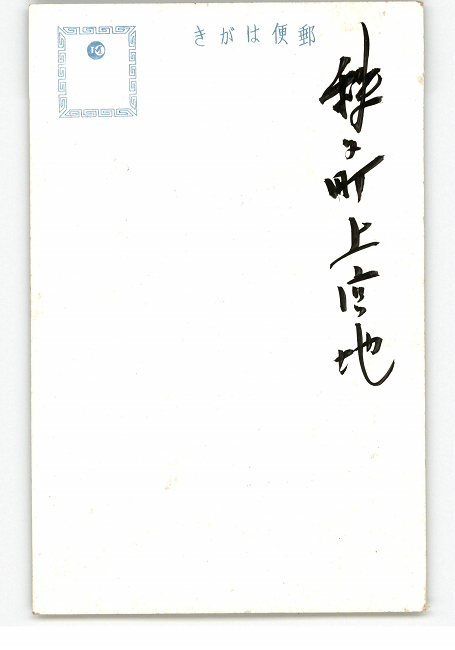 郵便はがき
秩父町上宮地